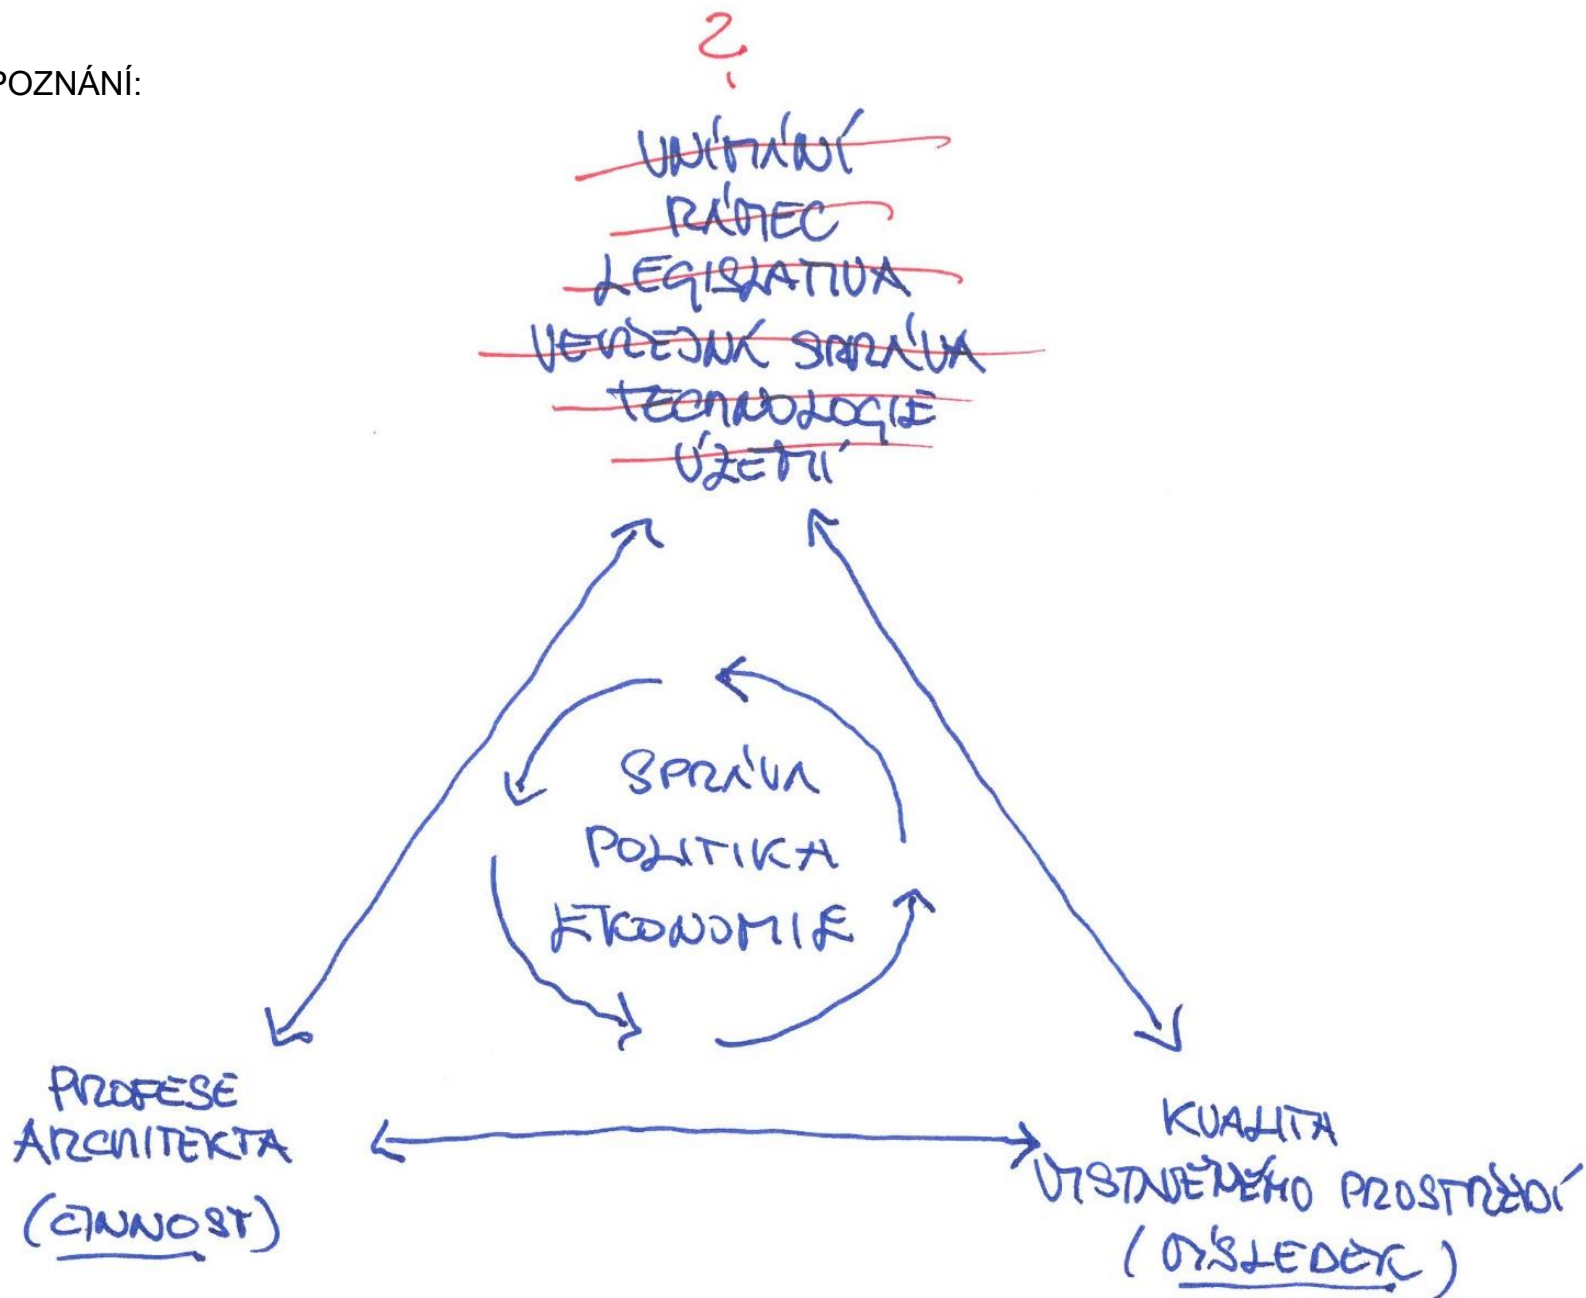 POZNÁNÍ:
?
VNÍMÁNÍ
RÁMEC
LEGISLATIVA
VEŘEJNÁ SPRÁVA
TECHNOLOGIE
ÚZEMÍ
SPRÁVA
POLITIKA
EKONOMIE
PROFESE
ARCHITEKTA
(ČINNOST)
KVALITA
VYSTAVĚNÉHO PROSTŘEDÍ
(VÝSLEDEK)